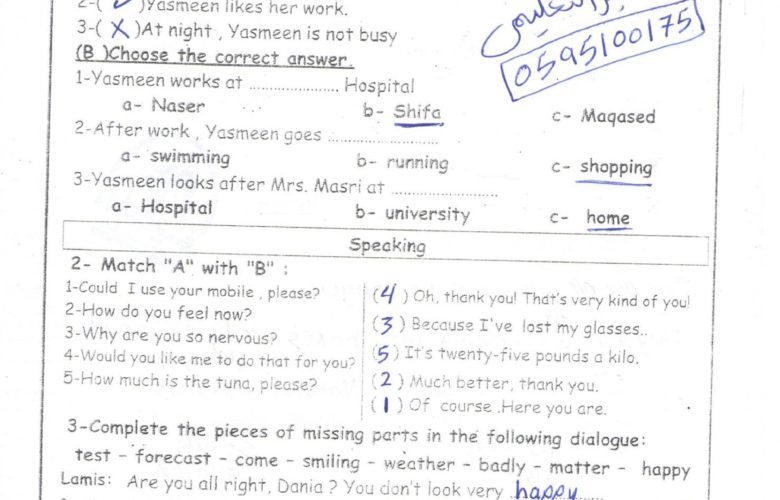 2-( ✓ )Yasmeen likes her work.
3-( X )At night , Yasmeen is not busy
0595100175
(B )Choose the correct answer.
1-Yasmeen works at ...................... Hospital
a- Naser b- Shifa c- Maqased
2-After work , Yasmeen goes ..........................
a- swimming b- running c- shopping
3-Yasmeen looks after Mrs. Masri at .........................
a- Hospital b- university c- home
Speaking
2- Match "A" with "B" :
1-Could I use your mobile , please? (4 ) Oh, thank you! That's very kind of you!
2-How do you feel now? (3 ) Because I've lost my glasses..
3-Why are you so nervous? (5 ) It's twenty-five pounds a kilo.
4-Would you like me to do that for you? (2 ) Much better, thank you.
5-How much is the tuna, please? (1 ) Of course .Here you are.
3-Complete the pieces of missing parts in the following dialogue:
test - forecast - come - smiling - weather - badly - matter - happy
Lamis: Are you all right, Dania ? You don't look very ..happy......